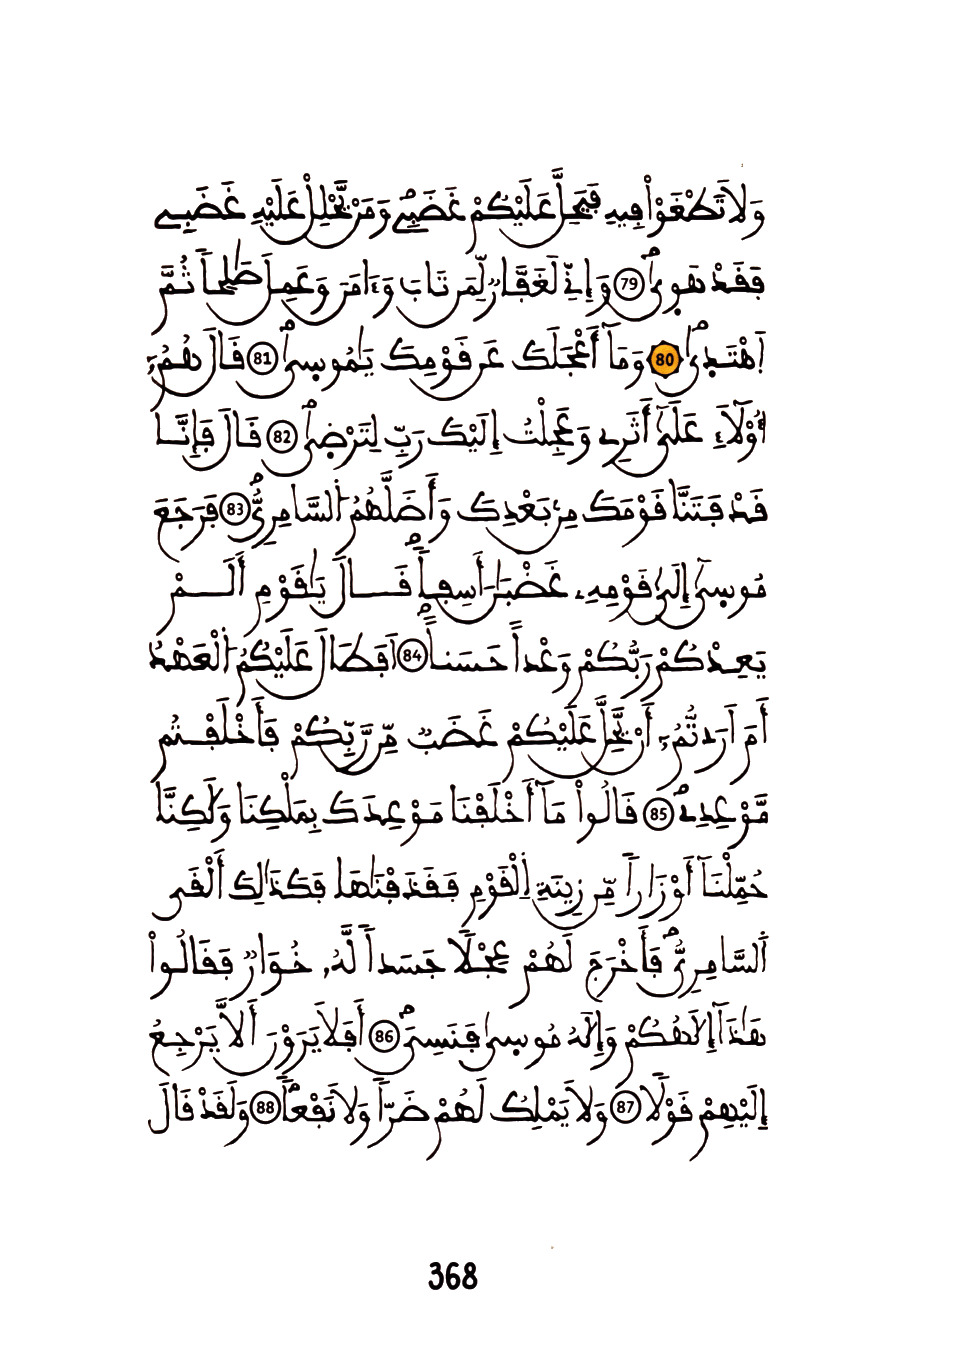 وَلَا تَطْغَوْاْ فِيهِ فَيَحِلَّ عَلَيْكُمْ غَضَبِے وَمَنْ يَّحْلِلْ عَلَيْهِ غَضَبِے
فَقَدْ هَوِىٰ 79 وَإِنِّے لَغَفَّارٌ لِّمَن تَابَ وَءَامَنَ وَعَمِلَ صَٰلِحاً ثُمَّ
اَهْتَدِىٰ 80 وَمَآ أَعْجَلَكَ عَن قَوْمِكَ يَٰمُوسِىٰ 81 قَالَ هُمُۥٓ
أُوْلَآءِ عَلَىٰٓ أَثَرِے وَعَجِلْتُ إِلَيْكَ رَبِّ لِتَرْضِىٰ 82 قَالَ فَإِنَّا
قَدْ فَتَنَّا قَوْمَكَ مِنۢ بَعْدِكَ وَأَضَلَّهُمُ اُ۬لسَّامِرِيُّ 83 فَرَجَعَ
مُوسِىٰٓ إِلَىٰ قَوْمِهِۦ غَضْبَٰنَ أَسِفاً قَالَ يَٰقَوْمِ أَلَمْ
يَعِدْكُمْ رَبُّكُمْ وَعْداً حَسَناً 84 اَفَطَالَ عَلَيْكُمُ اُ۬لْعَهْدُ
أَمَ اَرَدتُّمُۥٓ أَنْ يَّحِلَّ عَلَيْكُمْ غَضَبٌ مِّن رَّبِّكُمْ فَأَخْلَفْتُم
مَّوْعِدِے 85 قَالُواْ مَآ أَخْلَفْنَا مَوْعِدَكَ بِمَلْكِنَا وَلَٰكِنَّا
حُمِّلْنَآ أَوْزَاراً مِّن زِينَةِ اِ۬لْقَوْمِ فَقَذَفْنَٰهَا فَكَذَٰلِكَ أَلْقَى
اَ۬لسَّامِرِيُّ فَأَخْرَجَ لَهُمْ عِجْلًا جَسَداً لَّهُۥ خُوَارٌ فَقَالُواْ
هَٰذَآ إِلَٰهُكُمْ وَإِلَٰهُ مُوسِىٰ فَنَسِيَ 86 أَفَلَا يَرَوْنَ أَلَّا يَرْجِعُ
إِلَيْهِمْ قَوْلًا 87 وَلَا يَمْلِكُ لَهُمْ ضَرّاً وَلَا نَفْعاً 88 وَلَقَدْ قَالَ
368